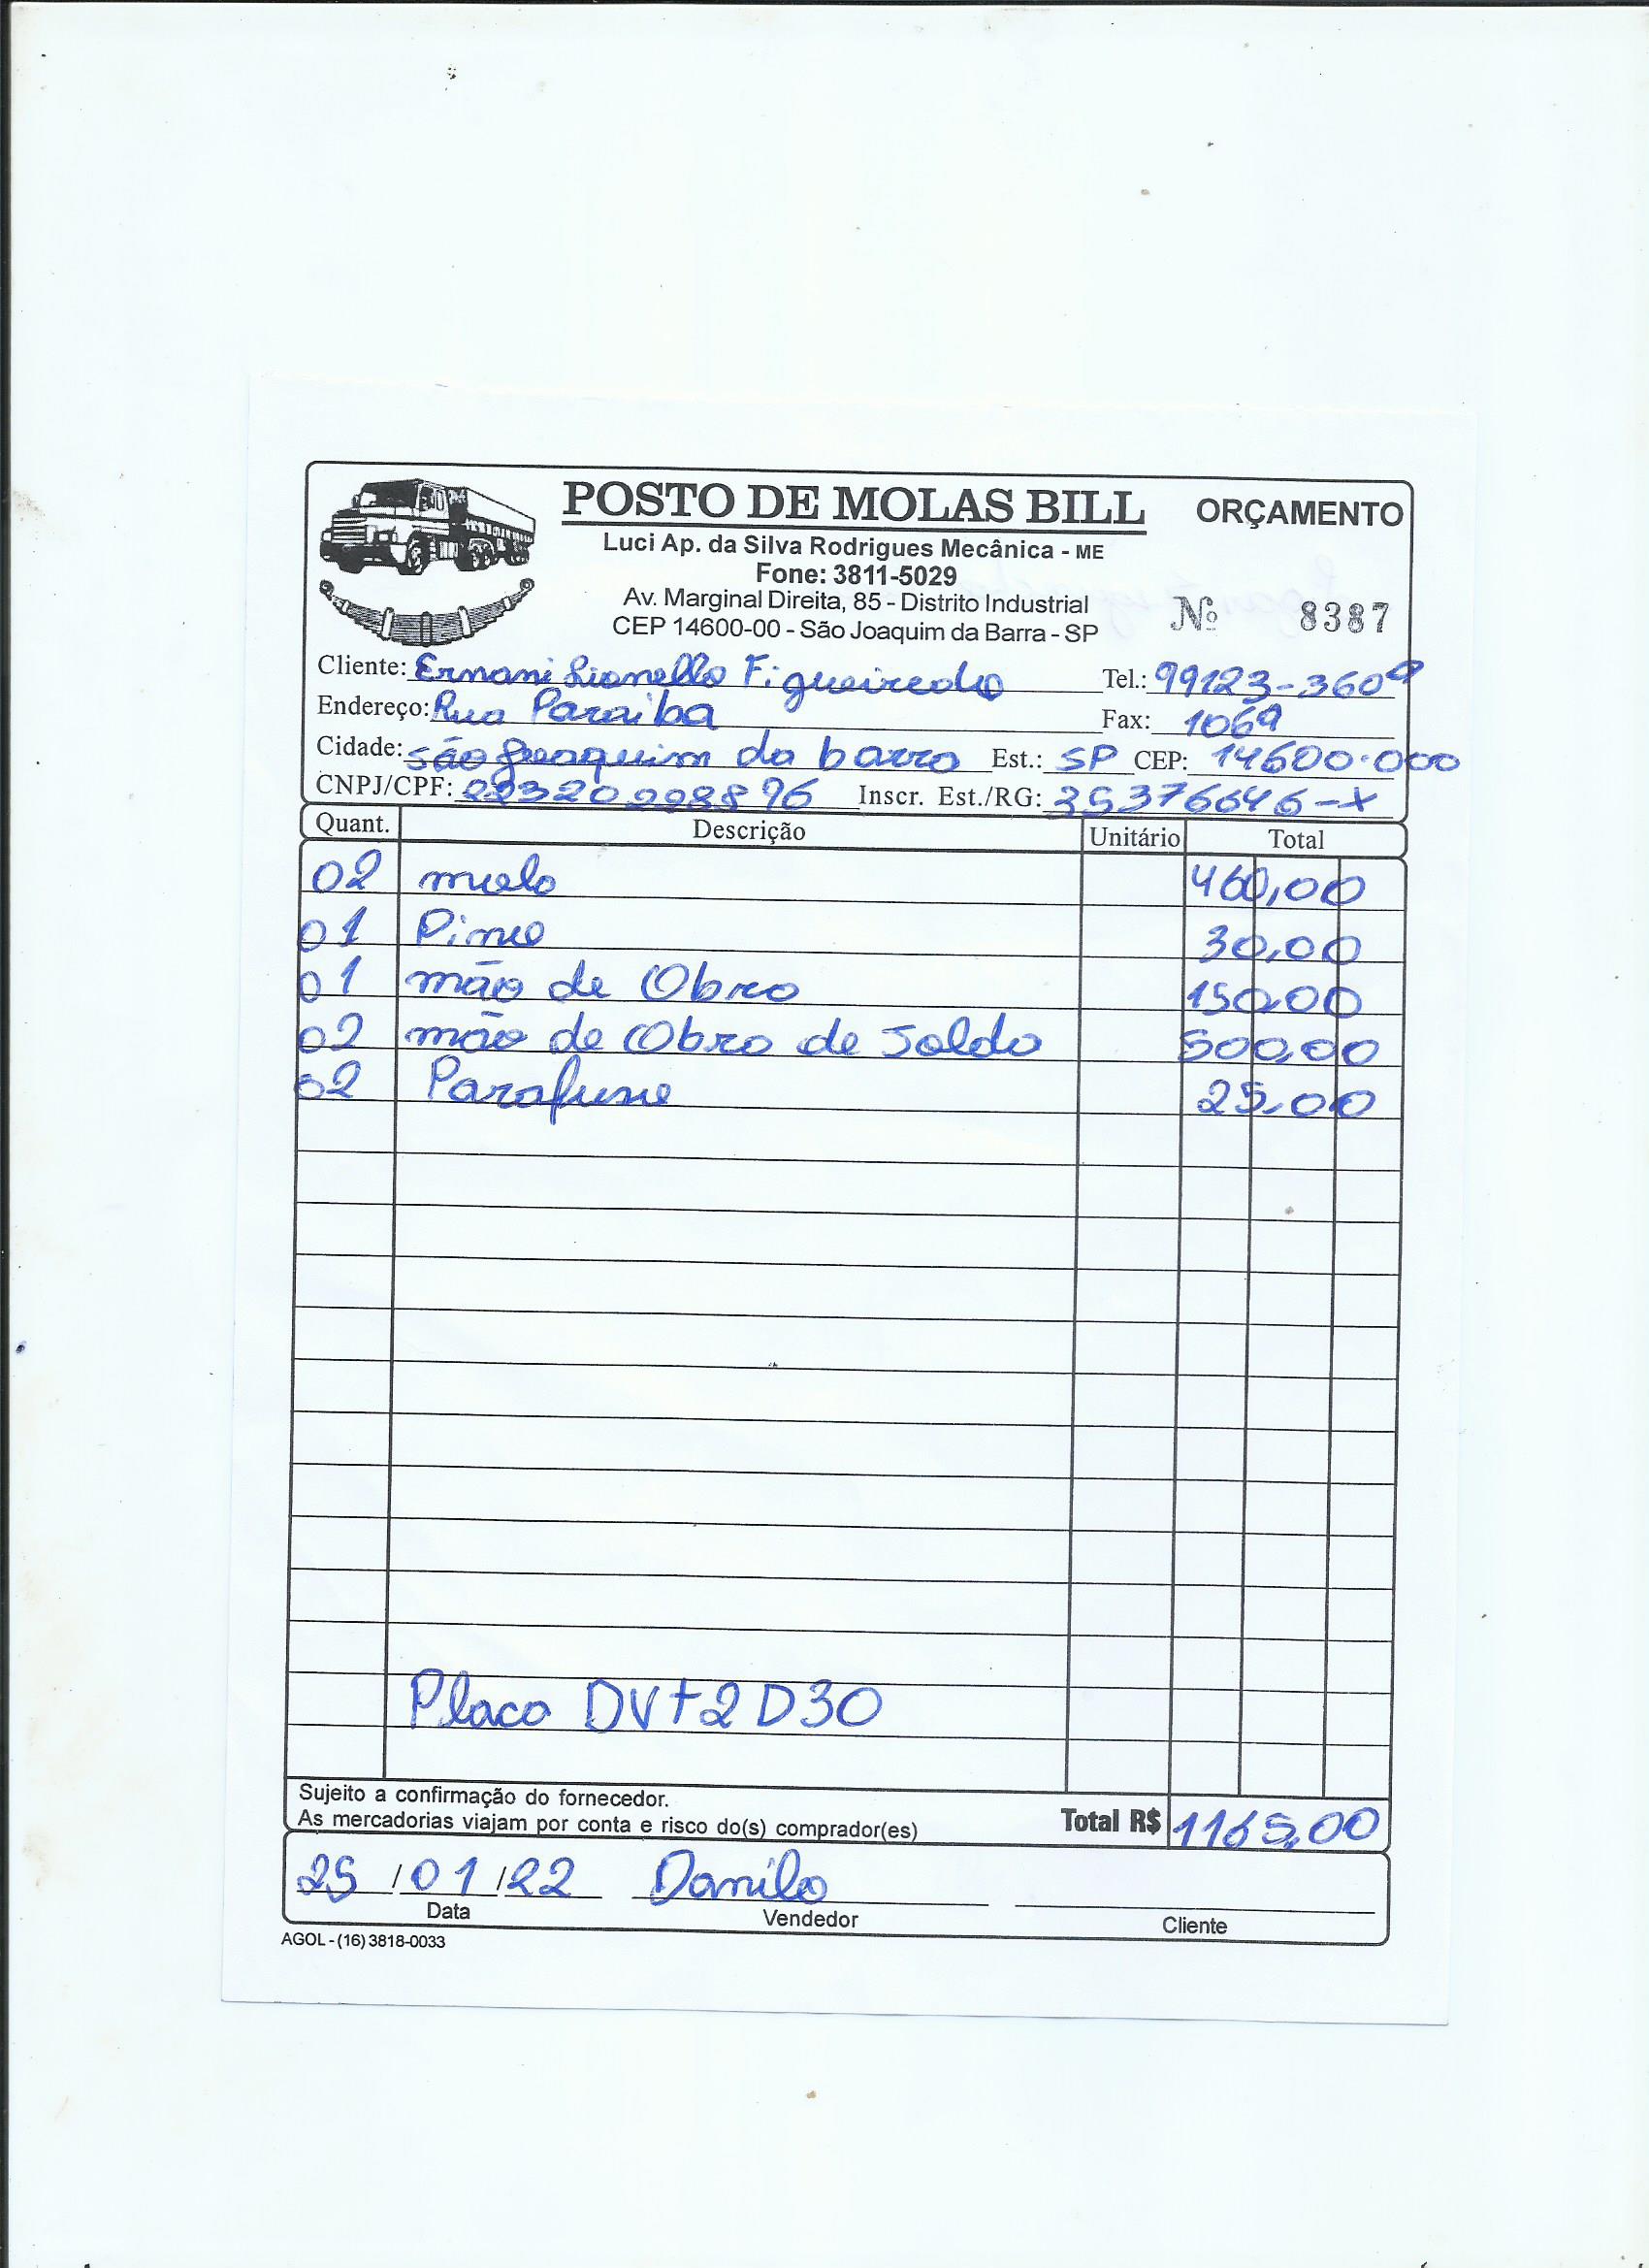 POSTO DE MOLAS BILL ORÇAMENTO
Luci Ap. da Silva Rodrigues Mecânica - ME
Fone: 3811-5029
Av. Marginal Direita, 85 - Distrito Industrial
CEP 14600-00 - São Joaquim da Barra - SP
Nº 8387
Cliente: Ernani Lionello Figueiredo Tel.: 99123-3609
Endereço: Rua Paraiba Fax: 1069
Cidade: são Joaquim da barra Est.: SP CEP: 14600.000
CNPJ/CPF: Inscr. Est./RG: 35376646-X
Quant. Descrição Unitário Total
02 mola 460,00
01 Pino 30,00
01 mão de Obra 150,00
02 mão de Obra de Solda 500,00
02 Parafuso 25,00
Placa DVT2D30
Sujeito a confirmação do fornecedor.
As mercadorias viajam por conta e risco do(s) comprador(es) Total R$ 1165,00
25/01/22 Danilo
Data Vendedor Cliente
AGOL - (16) 3818-0033